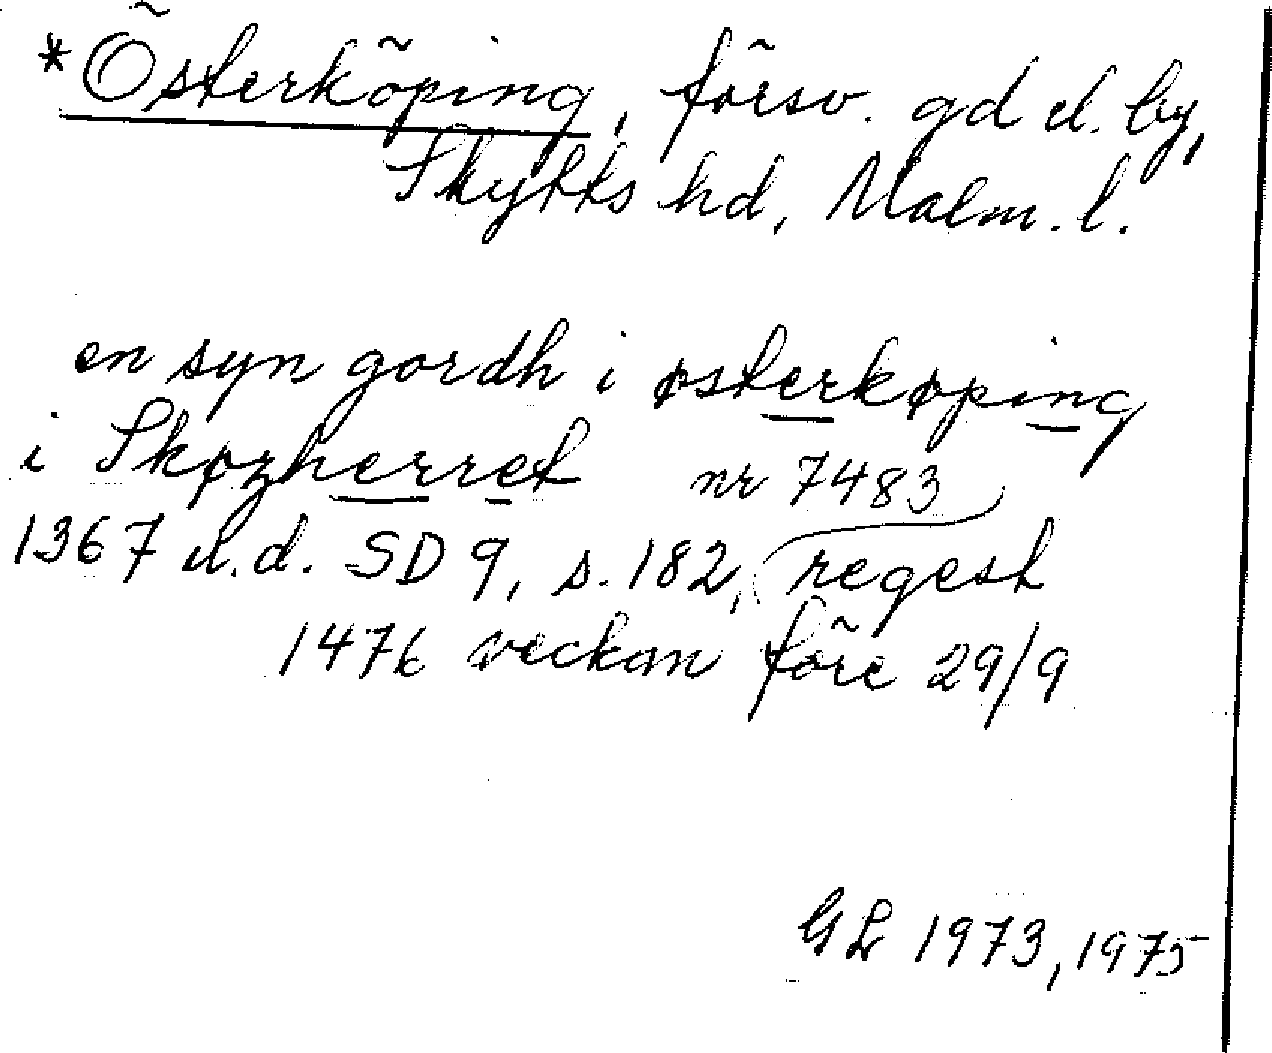 *Österköping, försv. gd el. by,
Skytts hd, Malm. l.
en syn gordh i østerkøping
i Skøzherret nr 7483
1367 u.d. SD 9, s. 182, regest
1476 veckan före 29/9
GL 1973, 1975